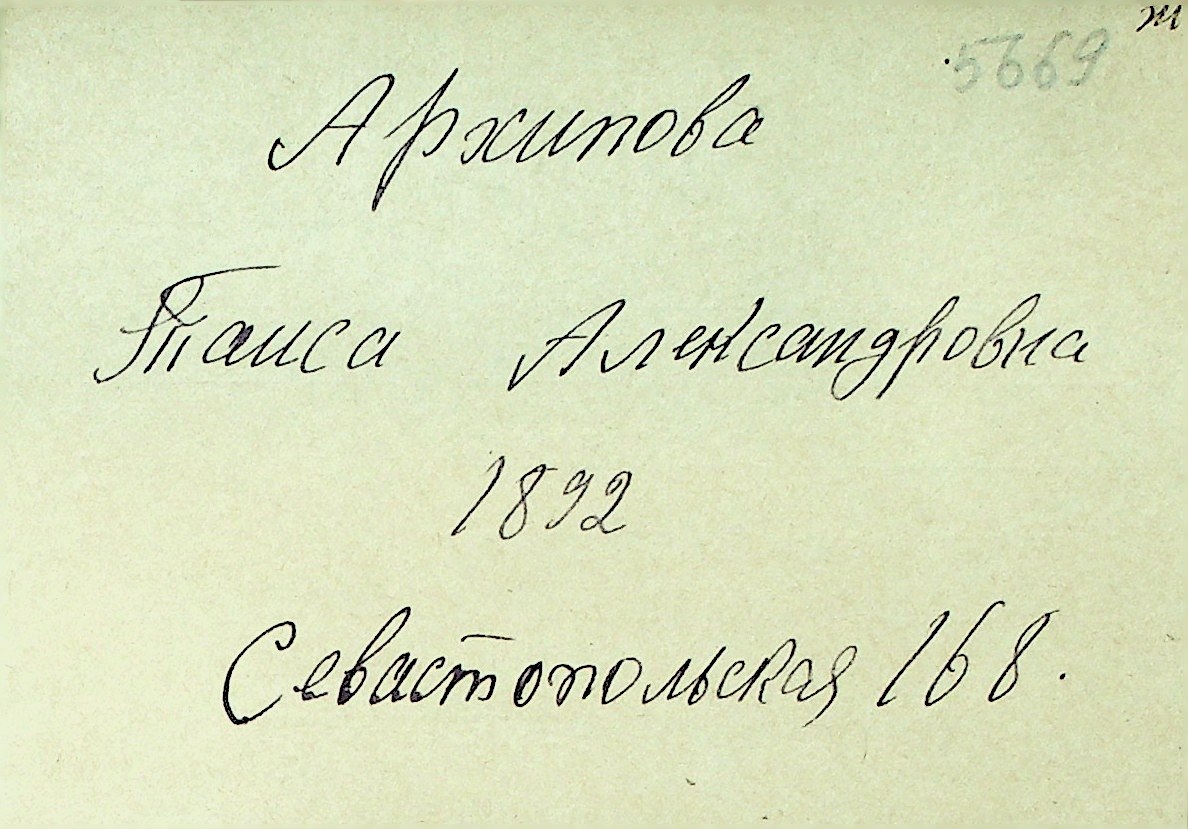 т
5669
Архипова
Таиса Александровна
1892
Севастопольская 168.